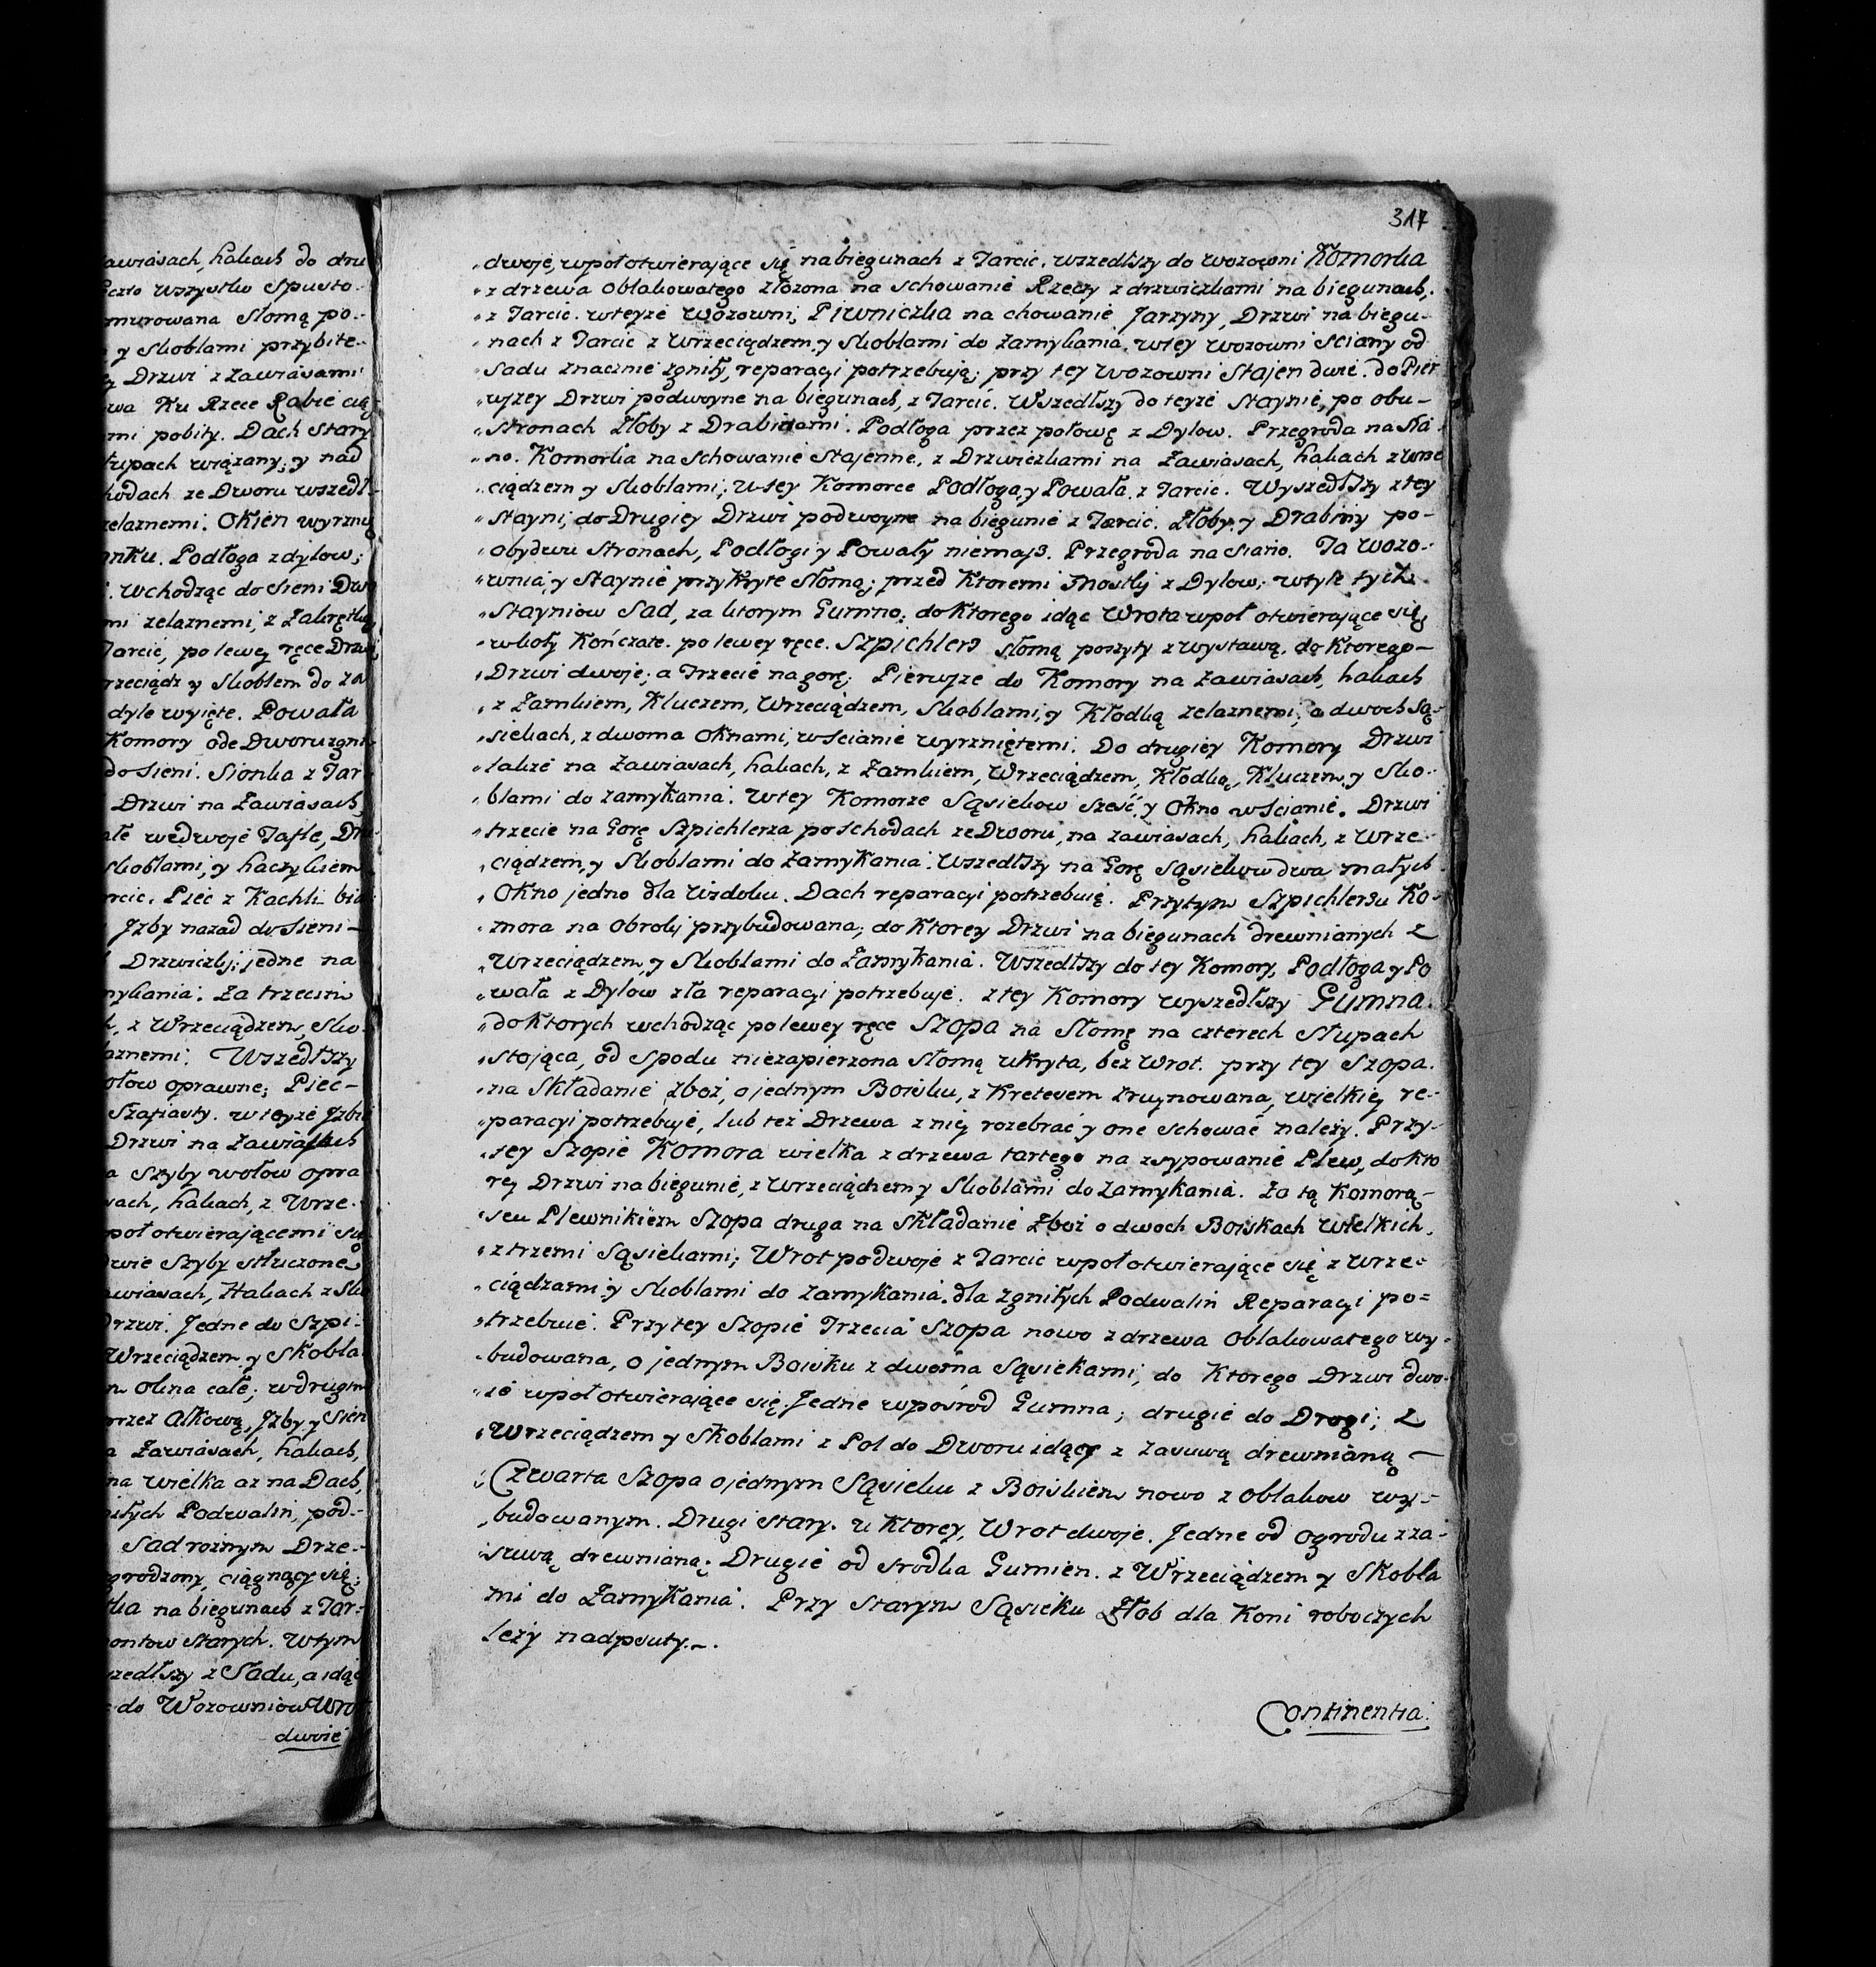 awiasach, hakach do dru
wszystko Spusto-
murowana Słomą po-
y skoblami przybite-
Drzwi z zawiasami
Ku Rzece Rabie cią
mi pobity. Dach stary
łupach związany; y nad
hodach ze Dworu wszedł-
zelaznemi. Okien wyrzną
anku. Podłoga z dylow;
. wchodząc do sieni Dwo
mi zelaznemi, z Zakrętką
Tarcic, po lewey ręce Drzwi
rzeciądz y skoblem do za
dyle wyięte. Powała
Komory ode Dworu zgni
do sieni. Sionka z Tar
Drzwi na Zawiasach
we dwoje Tafle, Drz
skoblami, y haczykiem
rcic. Piec z Kachli bia
Jzby nazad do sieni-
Drzwiczki; jedne na
mykania. Za trzecim
, z Wrzeciądzem, sko-
laznemi. Wszedłszy
ołow oprawne; Piec-
Szafiasty. w teyże Jzbie
Drzwi na Zawiasach
a Szyby wołow opra
ach, hakach, z Wrze-
poł otwierającemi się
dwie Szyby stłuczone
awiasach, Hakach z sko
Drzwi. Jedne do Szpi-
Wrzeciądzem y Skobla
okna całe; w drugim
przez Alkową, Jzby y sien
a Zawiasach, hakach,
na wielka az na Dach,
niłych Podwalin, pod-
Sad roznym Drze-
grodzony, ciągnący się;
tka na biegunach z Tar-
ontow starych. W tym
szedłszy z Sadu, a idąc
do Wozowniow Wrot
dwoie
317
dwoje, wpoł otwierające się na biegunach z Tarcic. wszedłszy do wozowni Komorka
z drzewa Obłakowatego złożona na schowanie Rzeczy z drzwiczkami na biegunach,
z Tarcic. w teyże Wozowni; Piwniczka na chowanie Jarzyny, Drzwi na biegu-
nach z Tarcic z Wrzeciądzem y skoblami do zamykania. w tey wozowni sciany od
Sadu znacznie zgniły, reparacyi potrzebują; przy tey Wozowni Stajen dwie. do Pier
wszey Drzwi podwoyne na biegunach, z Tarcic. Wszedłszy do teyże Staynie, po obu-
stronach Złoby z Drabinami. Podłoga przez połowę z Dylow. Przegroda na sia
no. Komorka na Schowanie stajenne, z Drzwiczkami na Zawiasach, hakach z wrze
ciądzem y skoblami; w tey Komorce Podłoga y Powała z Tarcic. Wyszedłszy z tey
Stayni, do Drugiey Drzwi podwoyne na biegunie z Tarcic. Złoby y Drabiny po-
obydwu Stronach, Podłogi y Powały niemasz. Przegroda na siano. Ta Wozo-
wnia, y Staynie przykryte Słomą; przed Ktoremi Mostki z Dylow, w tyle tych
Stayniow Sad, za ktorym Gumno; do Ktorego idąc Wrota wpoł otwierające się,
w koły Kończate. po lewey ręce. Szpichlerz słomą poszyty z wystawą, do Ktorego-
Drzwi dwoje; a Trzecie na gorę; Pierwsze do Komory na Zawiasach, hakach
z Zamkiem, Kluczem, Wrzeciądzem, Skoblami, y Kłodką zelaznemi; o dwoch Są-
siekach, z dwoma Oknami, w ścianie wyrzniętemi. Do drugiey Komory Drzwi
takze na Zawiasach, hakach, z Zamkiem, Wrzeciądzem, Kłodką, Kluczem, y sko-
blami do zamykania. W tey Komorze Sąsiekow sześć, y Okno w ścianie. Drzwi
trzecie na Gorę Szpichlerza po schodach ze Dworu, na zawiasach, hakach, z Wrze-
ciądzem, y Skoblami do zamykania. Wszedłszy na Gorę Sąsiekow dwa małych
Okno jedno dla Widoku. Dach reparacyi potrzebuię. Przytym Szpichlerzu Ko-
mora na Obroki przybudowana, do Ktorey Drzwi na biegunach drewnianych z
Wrzeciądzem y Skoblami do Zamykania. Wszedłszy do tey Komory, Podłoga y Po
wała z Dylow zła reparacyi potrzebuje. z tey Komory wyszedłszy Gumna.
do Ktorych wchodząc po lewey ręce Szopa na Słomę na czterech słupach
stojąca, od spodu niezapierzona słomą ukryta, bez Wrot. przy tey Szopa.
na Składanie zboż, o jednym Boisku, z Kretesem zruynowana, wielkiey re-
paracyi potrzebuje, lub też Drzewa z niey rozebrać y one schować należy. Przy-
tey Szopie Komora wielka z drzewa tartego na zsypowanie Plew, do Kto
rey Drzwi na biegunie, z Wrzeciądzem y Skoblami do zamykania. Za tą Komorą-
seu Plewnikiem Szopa druga na składanie zboż o dwoch Boiskach wielkich,
z trzemi Sąsiekami; Wrot podwoje z Tarcic wpoł otwierające się z Wrze-
ciądzami y skoblami do zamykania. dla zgniłych Podwalin Reparacyi po=
trzebuie. Przy tey Szopie Trzecia Szopa nowo z drzewa Obłakowatego wy-
budowana, o jednym Boisku z dwoma Sąsiekami, do Ktorego Drzwi dwo-
ie wpoł otwierające się. Jedne wpośrod Gumna; drugie do Drogi; z
Wrzeciądzem y Skoblami z Pol do Dworu idący z zasuwą drewnianą-
Czwarta Szopa o jednym Sąsieku z Boiskiem nowo z Obłakow wy-
budowanym. Drugi stary. u Ktorey, Wrot dwoje. Jedne od Ogrodu z za-
suwą drewnianą. Drugie od srodka Gumien. z Wrzeciądzem y Skobla
mi do Zamykania. Przy starym Sąsieku Złob dla Koni roboczych
leży nadpsuty.-.
Continentia.